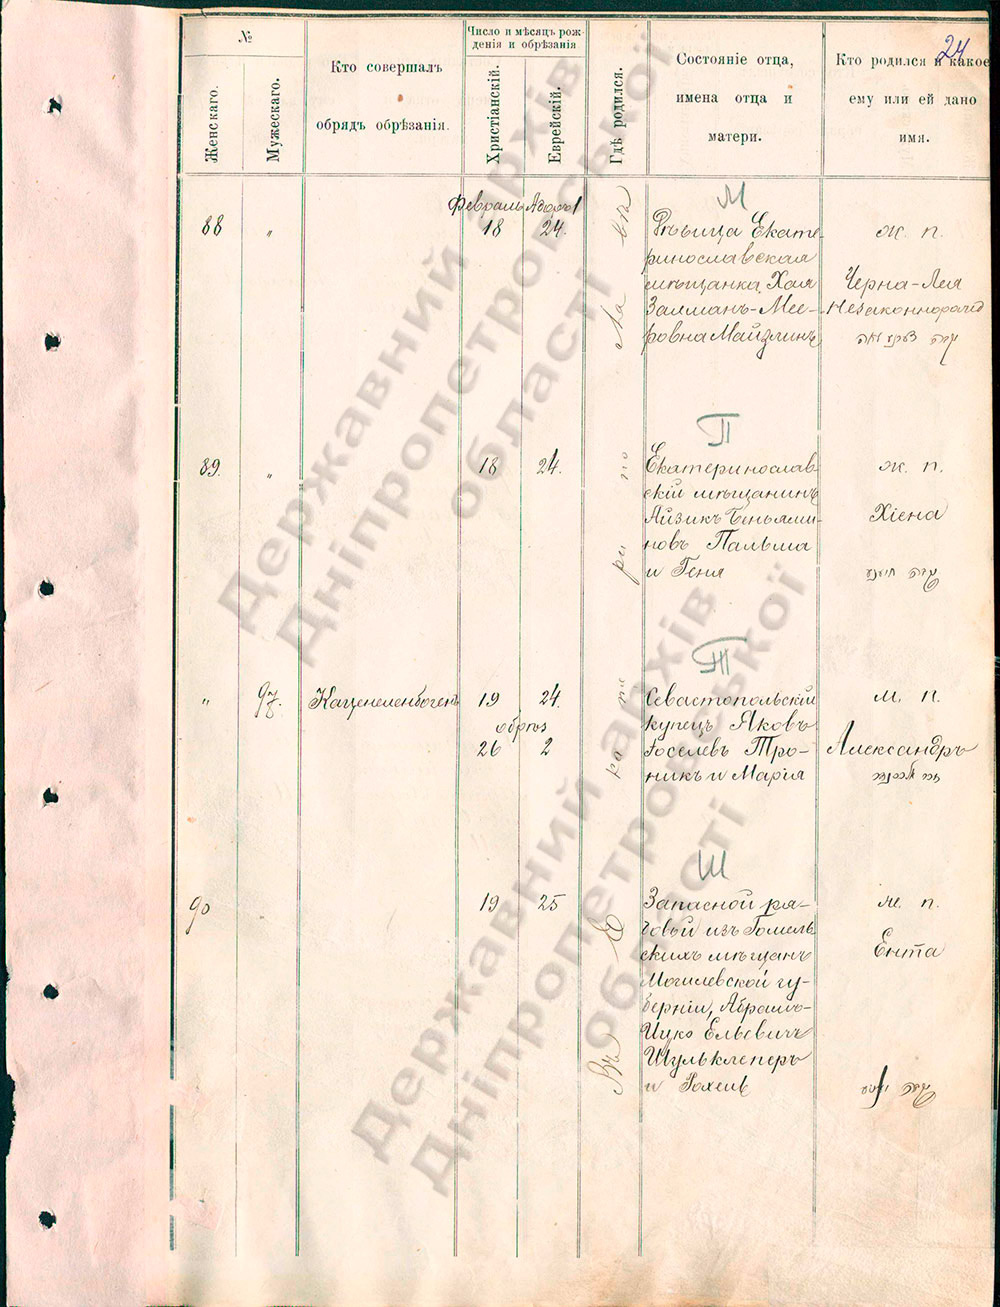 24
№
Женскаго.
Мужескаго.
Кто совершалъ
обрядъ обрѣзанія.
Число и мѣсяцъ рож-
денія и обрѣзанія
Христіанскій.
Еврейскій.
Гдѣ родился.
Состояніе отца,
имена отца и
матери.
Кто родился и какое
ему или ей дано
имя.
Февраль Адаръ 1
М
88 " 18 24.
Дѣвица Екате-
ринославская
мѣщанка Хая
Залманъ-Мее-
ровна Майзлинъ
ж. п.
Черна-Лея
Незаконнорожд
П
89. " 18 24.
Екатеринослав-
скій мѣщанинъ
Айзикъ Беньями-
новъ Пальма
и Геня
ж. п.
Хіена
Т
" 97. Каценеленбогенъ 19 24.
обрѣз
26 2
Севастопольскій
купецъ Яковъ
Іоселевъ Тро-
никъ и Марія
м. п.
Александръ
Ш
90 19 25
Запасной ря-
довый изъ Гомель
скихъ мѣщанъ
Могилевской гу-
берніи, Абрамъ-
Ицко Ельевичъ
Шульклеперъ
и Рохель
ж. п.
Ента
Въ Екатеринославѣ
Державний архів
Дніпропетровської
області
Державний архів
Дніпропетровської
області